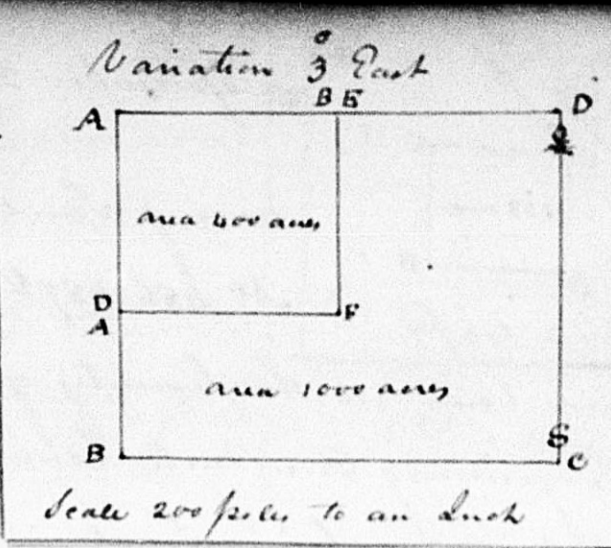 Variation 3° East
A B E D
area 400 acres
D F
A
area 1000 acres
B S C
Scale 200 poles to an Inch